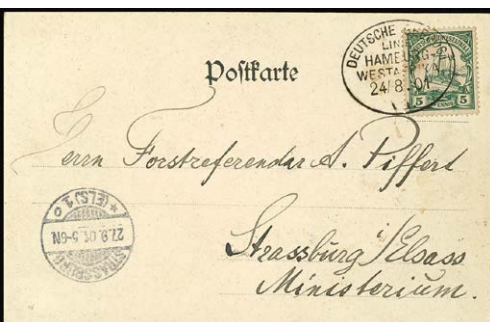 Postkarte
DEUTSCHE
LINIE
HAMBURG-
WESTAFRIKA
24/8 01
5 5
Herrn Forstreferendar A. Piffert
Strassburg i/Elsass
Ministerium.
STRASSBURG
27.9.01. 5-6N
* (ELS) 1 o